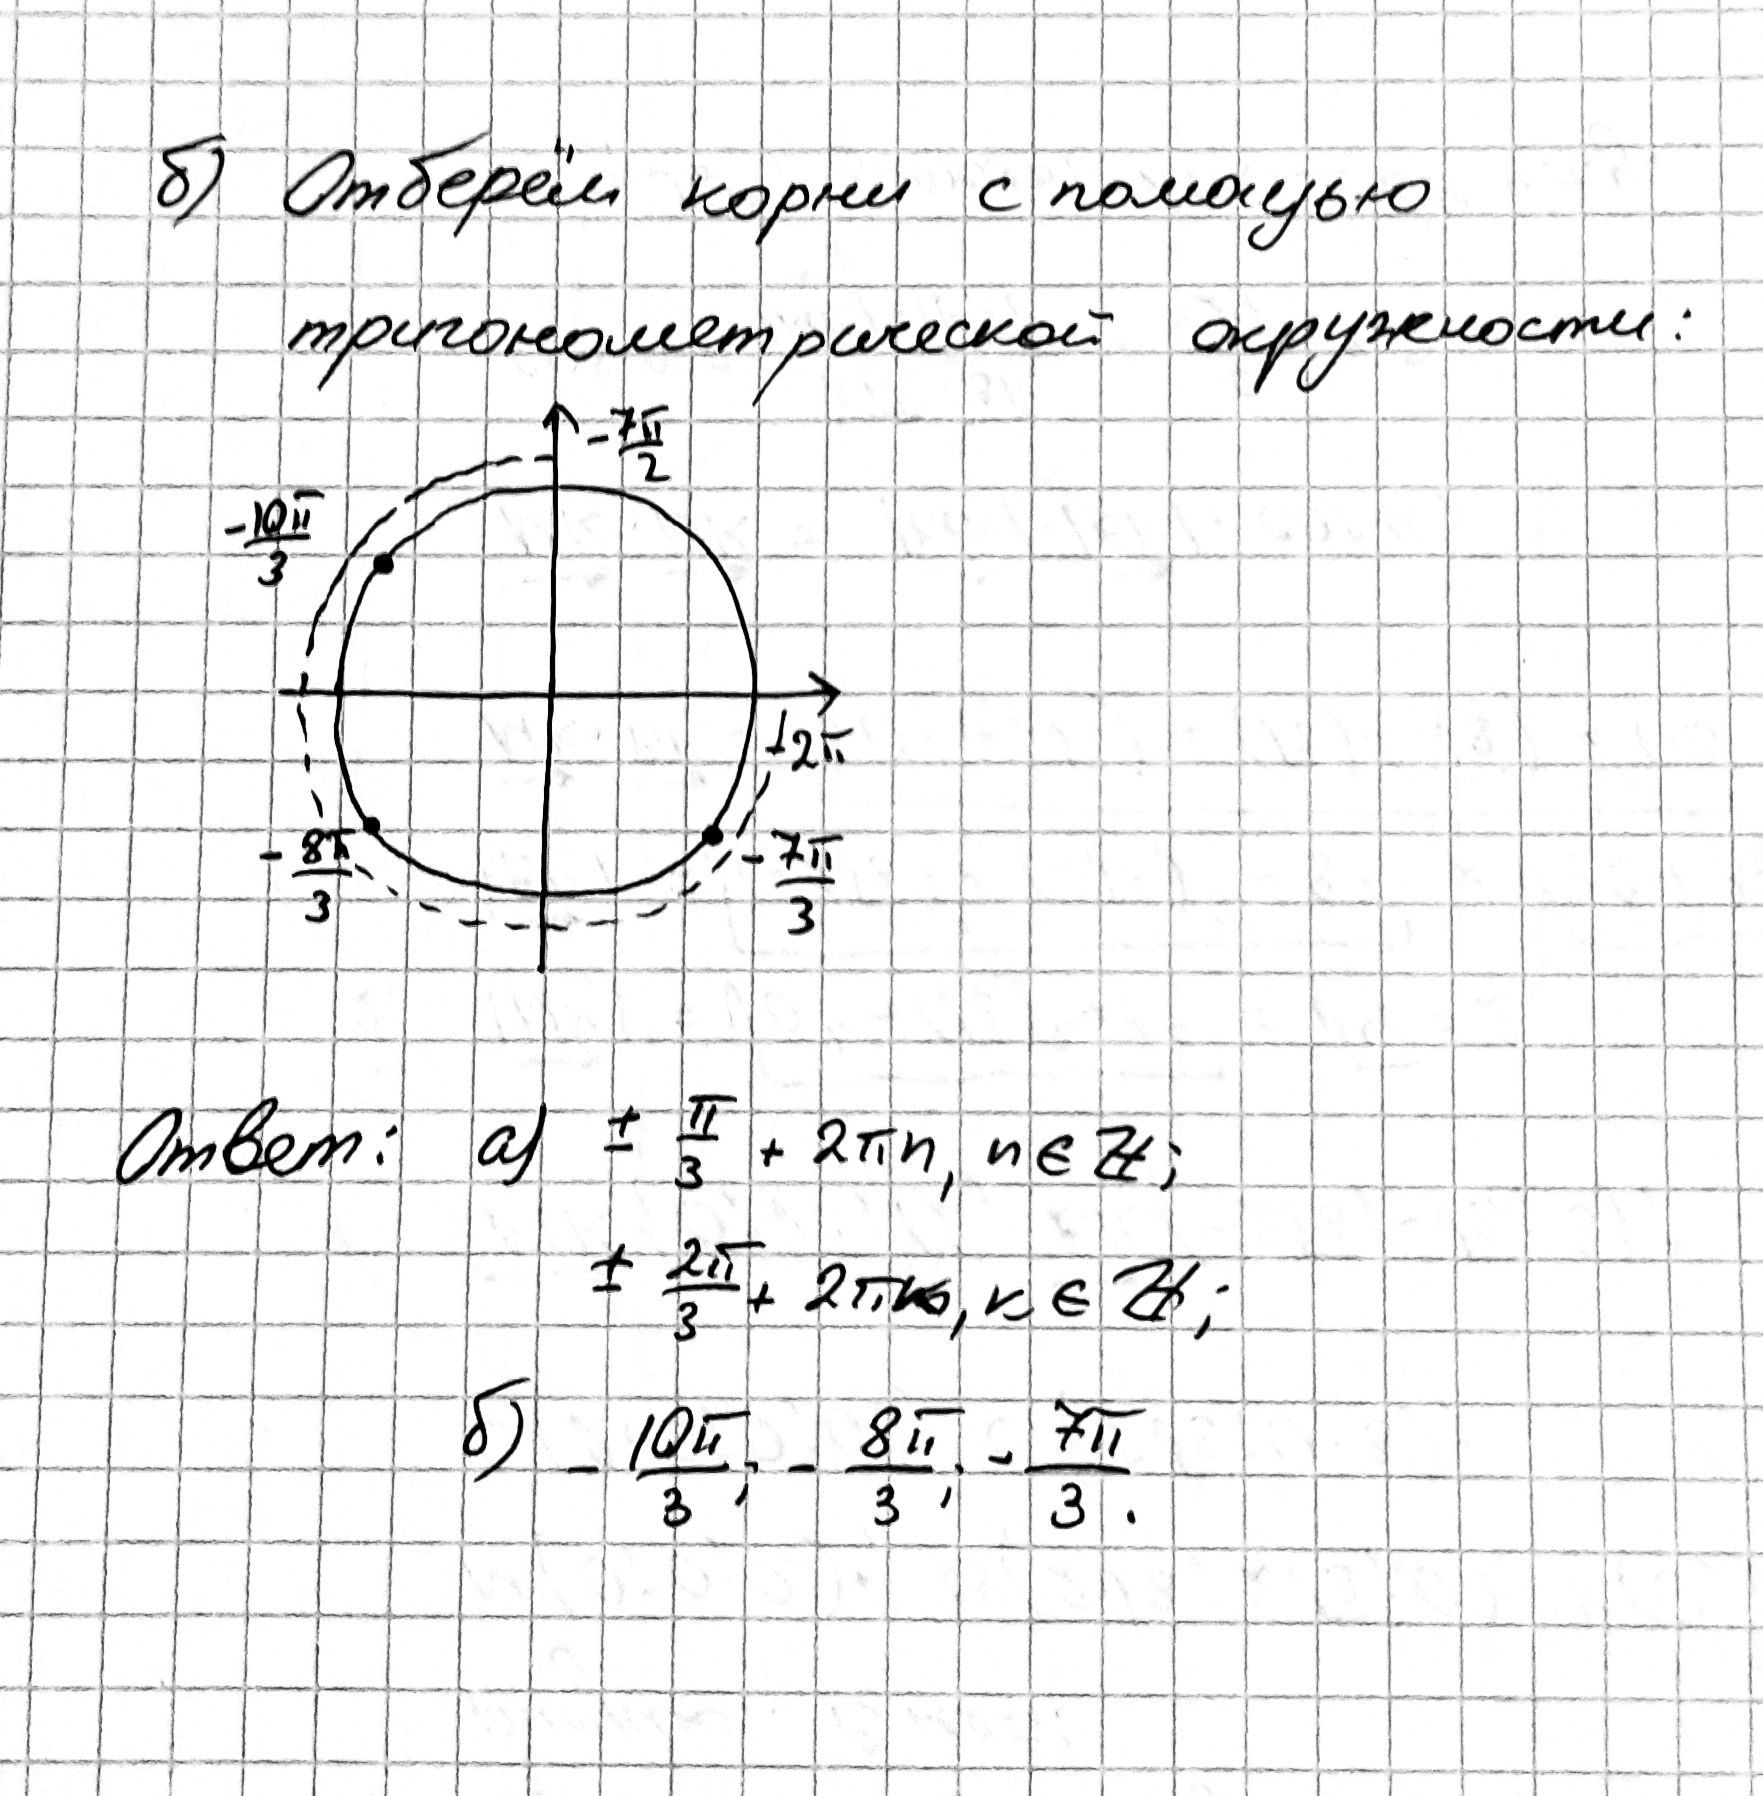 б) Отберём корни с помощью
тригонометрической окружности:
-7π/2
-10π/3
-2π
-8π/3
-7π/3
Ответ: а) ± π/3 + 2πn, n ∈ ℤ;
± 2π/3 + 2πk, k ∈ ℤ;
б) -10π/3; -8π/3; -7π/3.